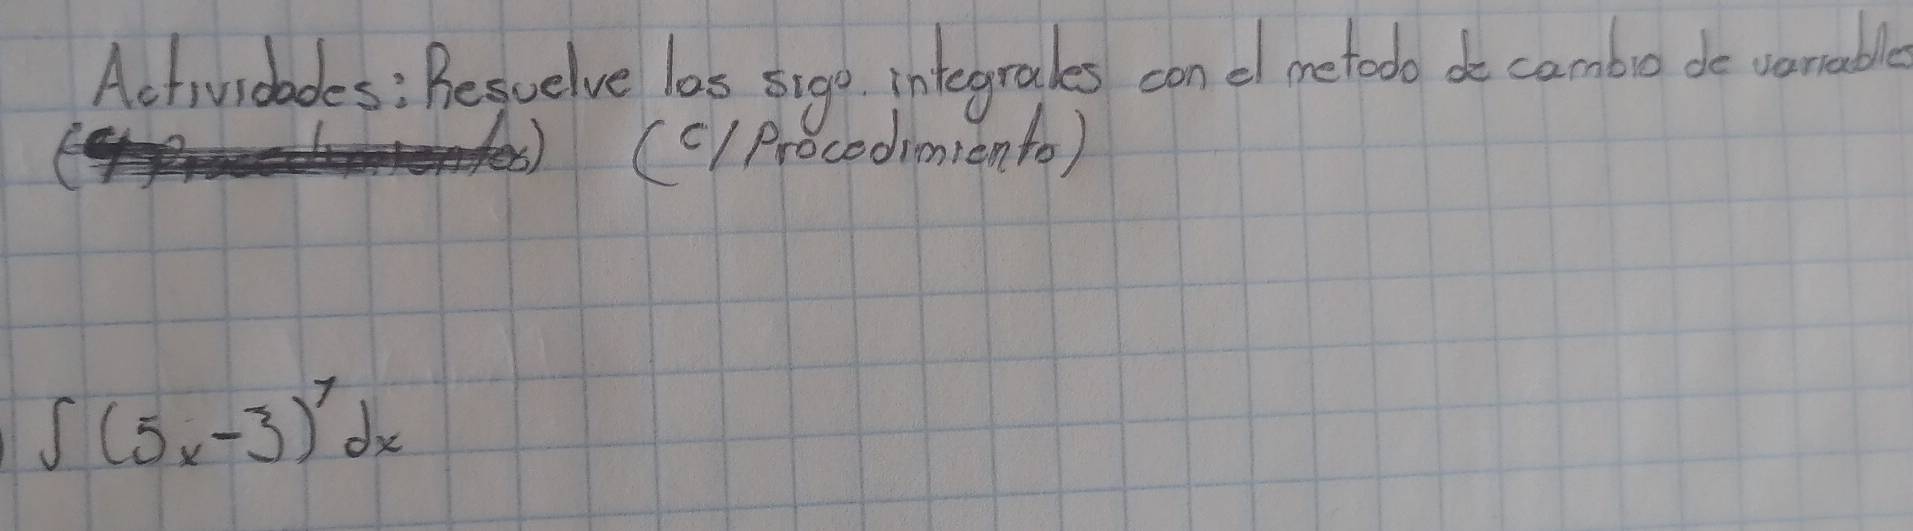 Actividades: Resuelve las sigo. integrales con el metodo de cambio de variables
(c/Procedimiento)
∫ (5x-3)⁷ dx